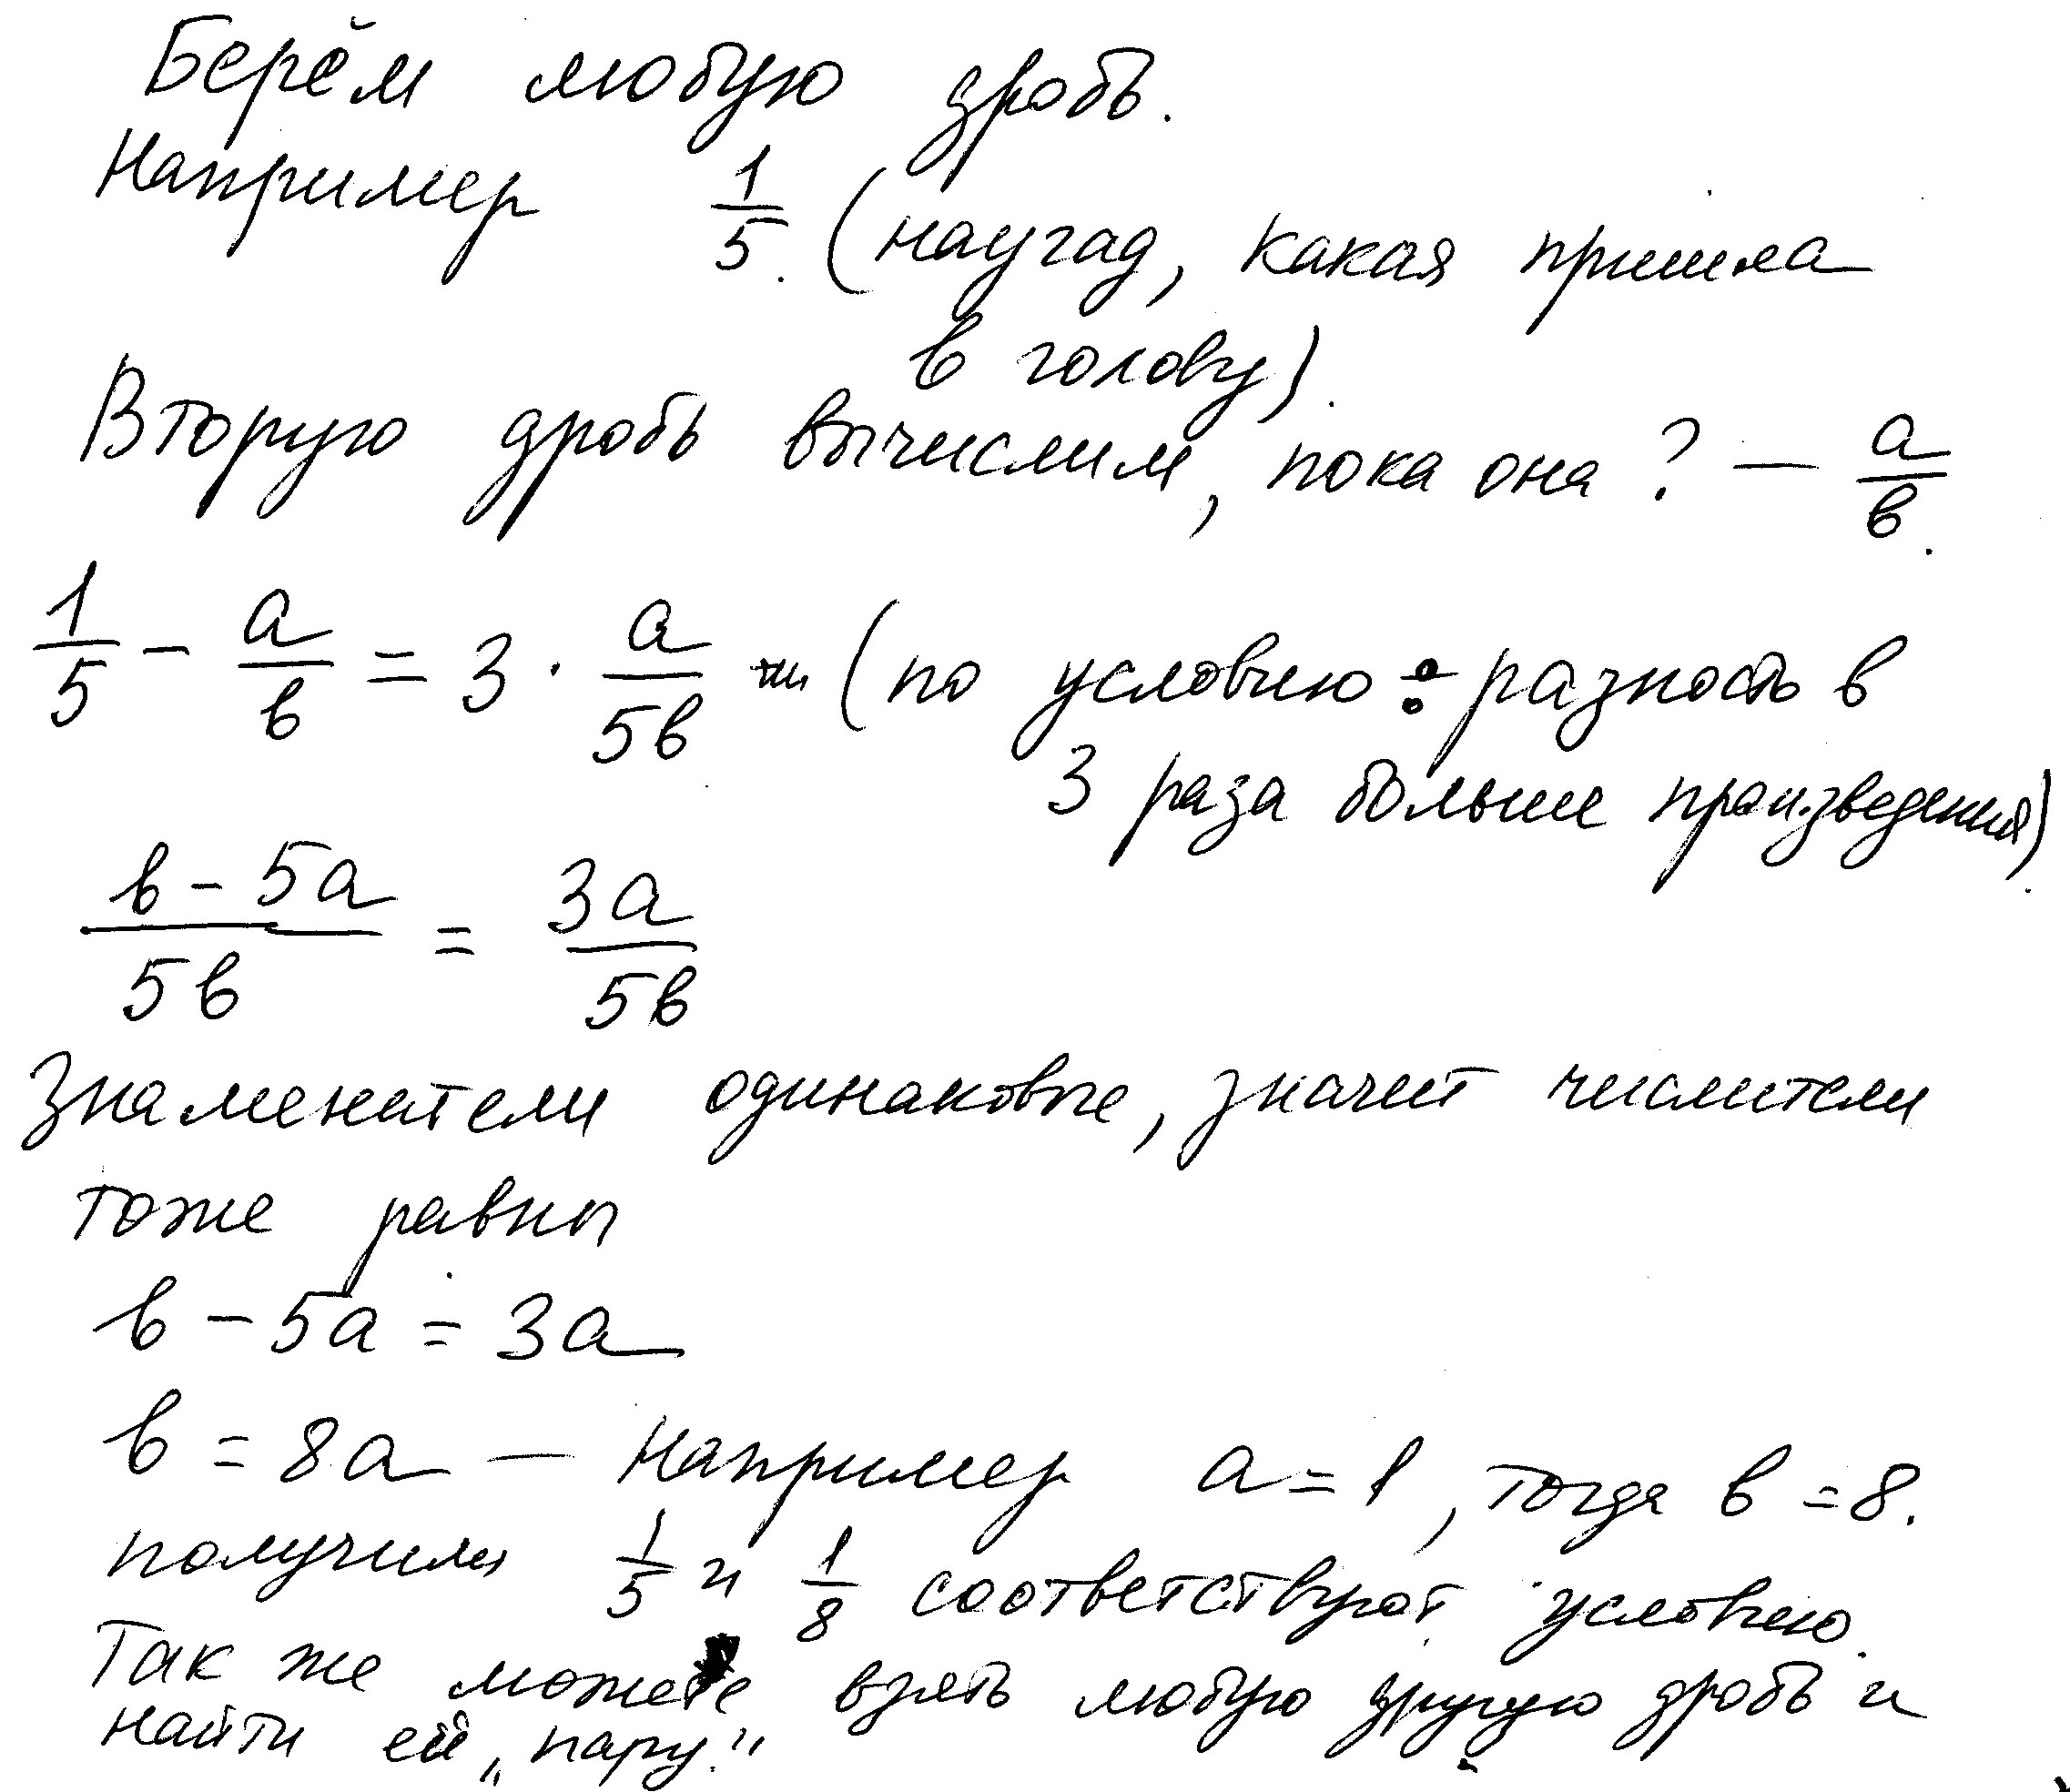 Берём любую дробь.
Например 1/5. (наугад, какая пришла
в голову).
Вторую дробь вычислим, пока она ? — a/в.
1/5 - a/в = 3 · a/5в (по условию: разность в
3 раза больше произведения).
в - 5a/5в = 3a/5в
Знаменатели одинаковые, значит числители
тоже равны
в - 5a = 3a
в = 8a — Например a = 1, тогда в = 8.
получили 1/5 и 1/8 соответствуют условию.
Так же можете взять любую другую дробь и
найти ей „пару."